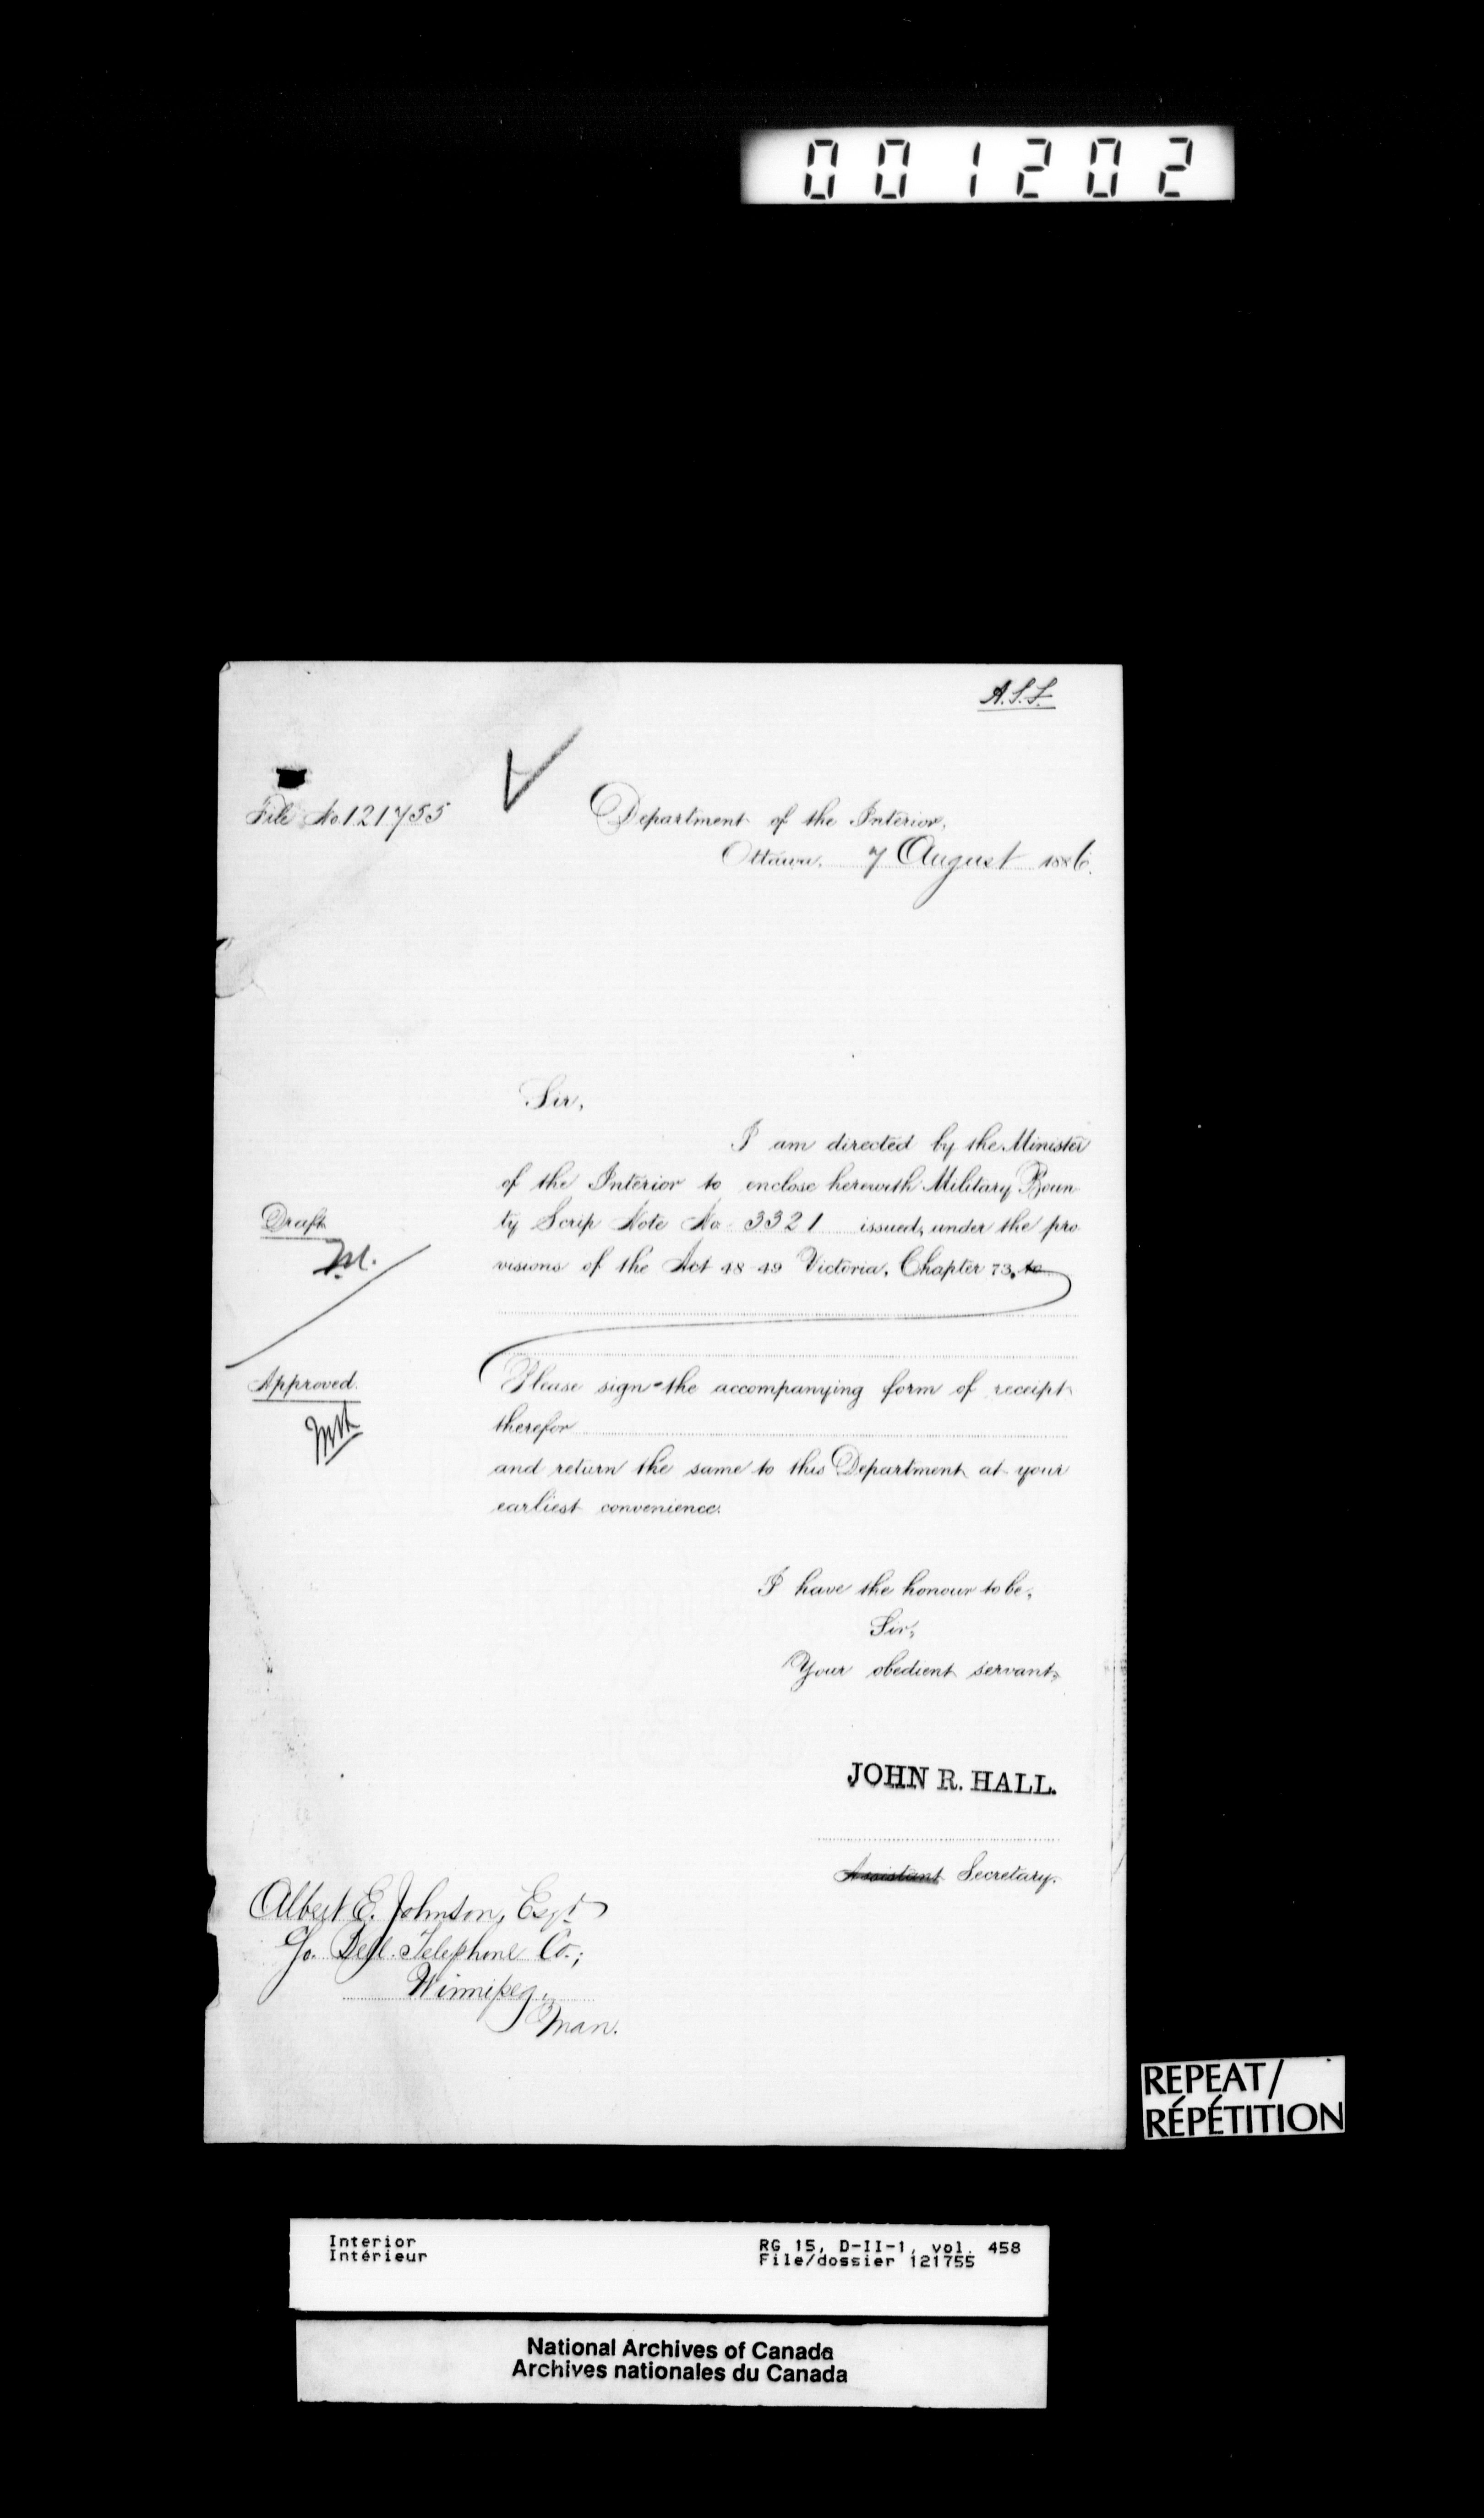 001202
A.S.S.
File No 121755
Department of the Interior,
Ottawa, 7 August 1886.
Sir,
I am directed by the Minister
of the Interior to enclose herewith Military Boun
ty Scrip Note No 3321 issued, under the pro
visions of the Act 48-49 Victoria, Chapter 73, to
Draft
M.
Approved.
Please sign the accompanying form of receipt
therefor
and return the same to this Department at your
earliest convenience.
I have the honour to be,
Sir,
Your obedient servant,
JOHN R. HALL.
Assistant Secretary.
Albert E. Johnson, Esqr
c/o. Bell Telephone Co.;
Winnipeg,
Man.
REPEAT/
RÉPÉTITION
Interior
Intérieur
RG 15, D-II-1, vol. 458
File/dossier 121755
National Archives of Canada
Archives nationales du Canada